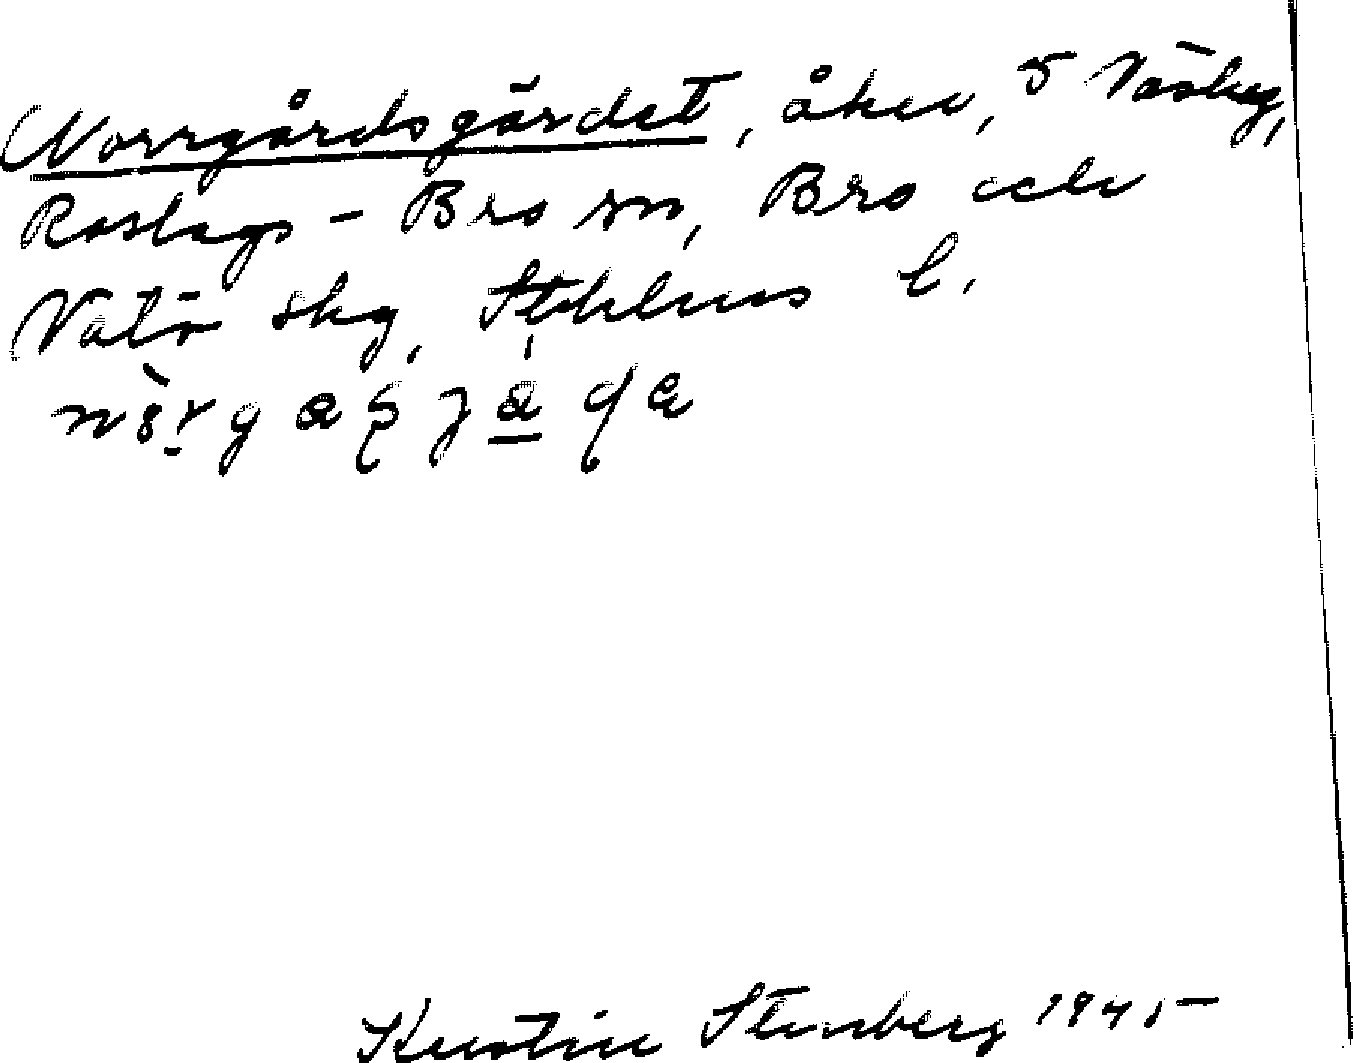 Norrgårdsgärdet, åker, 5 Väsby,
Roslags-Bro sn, Bro och
Vätö skg, Sthlms l.
Kerstin Stenberg 1945